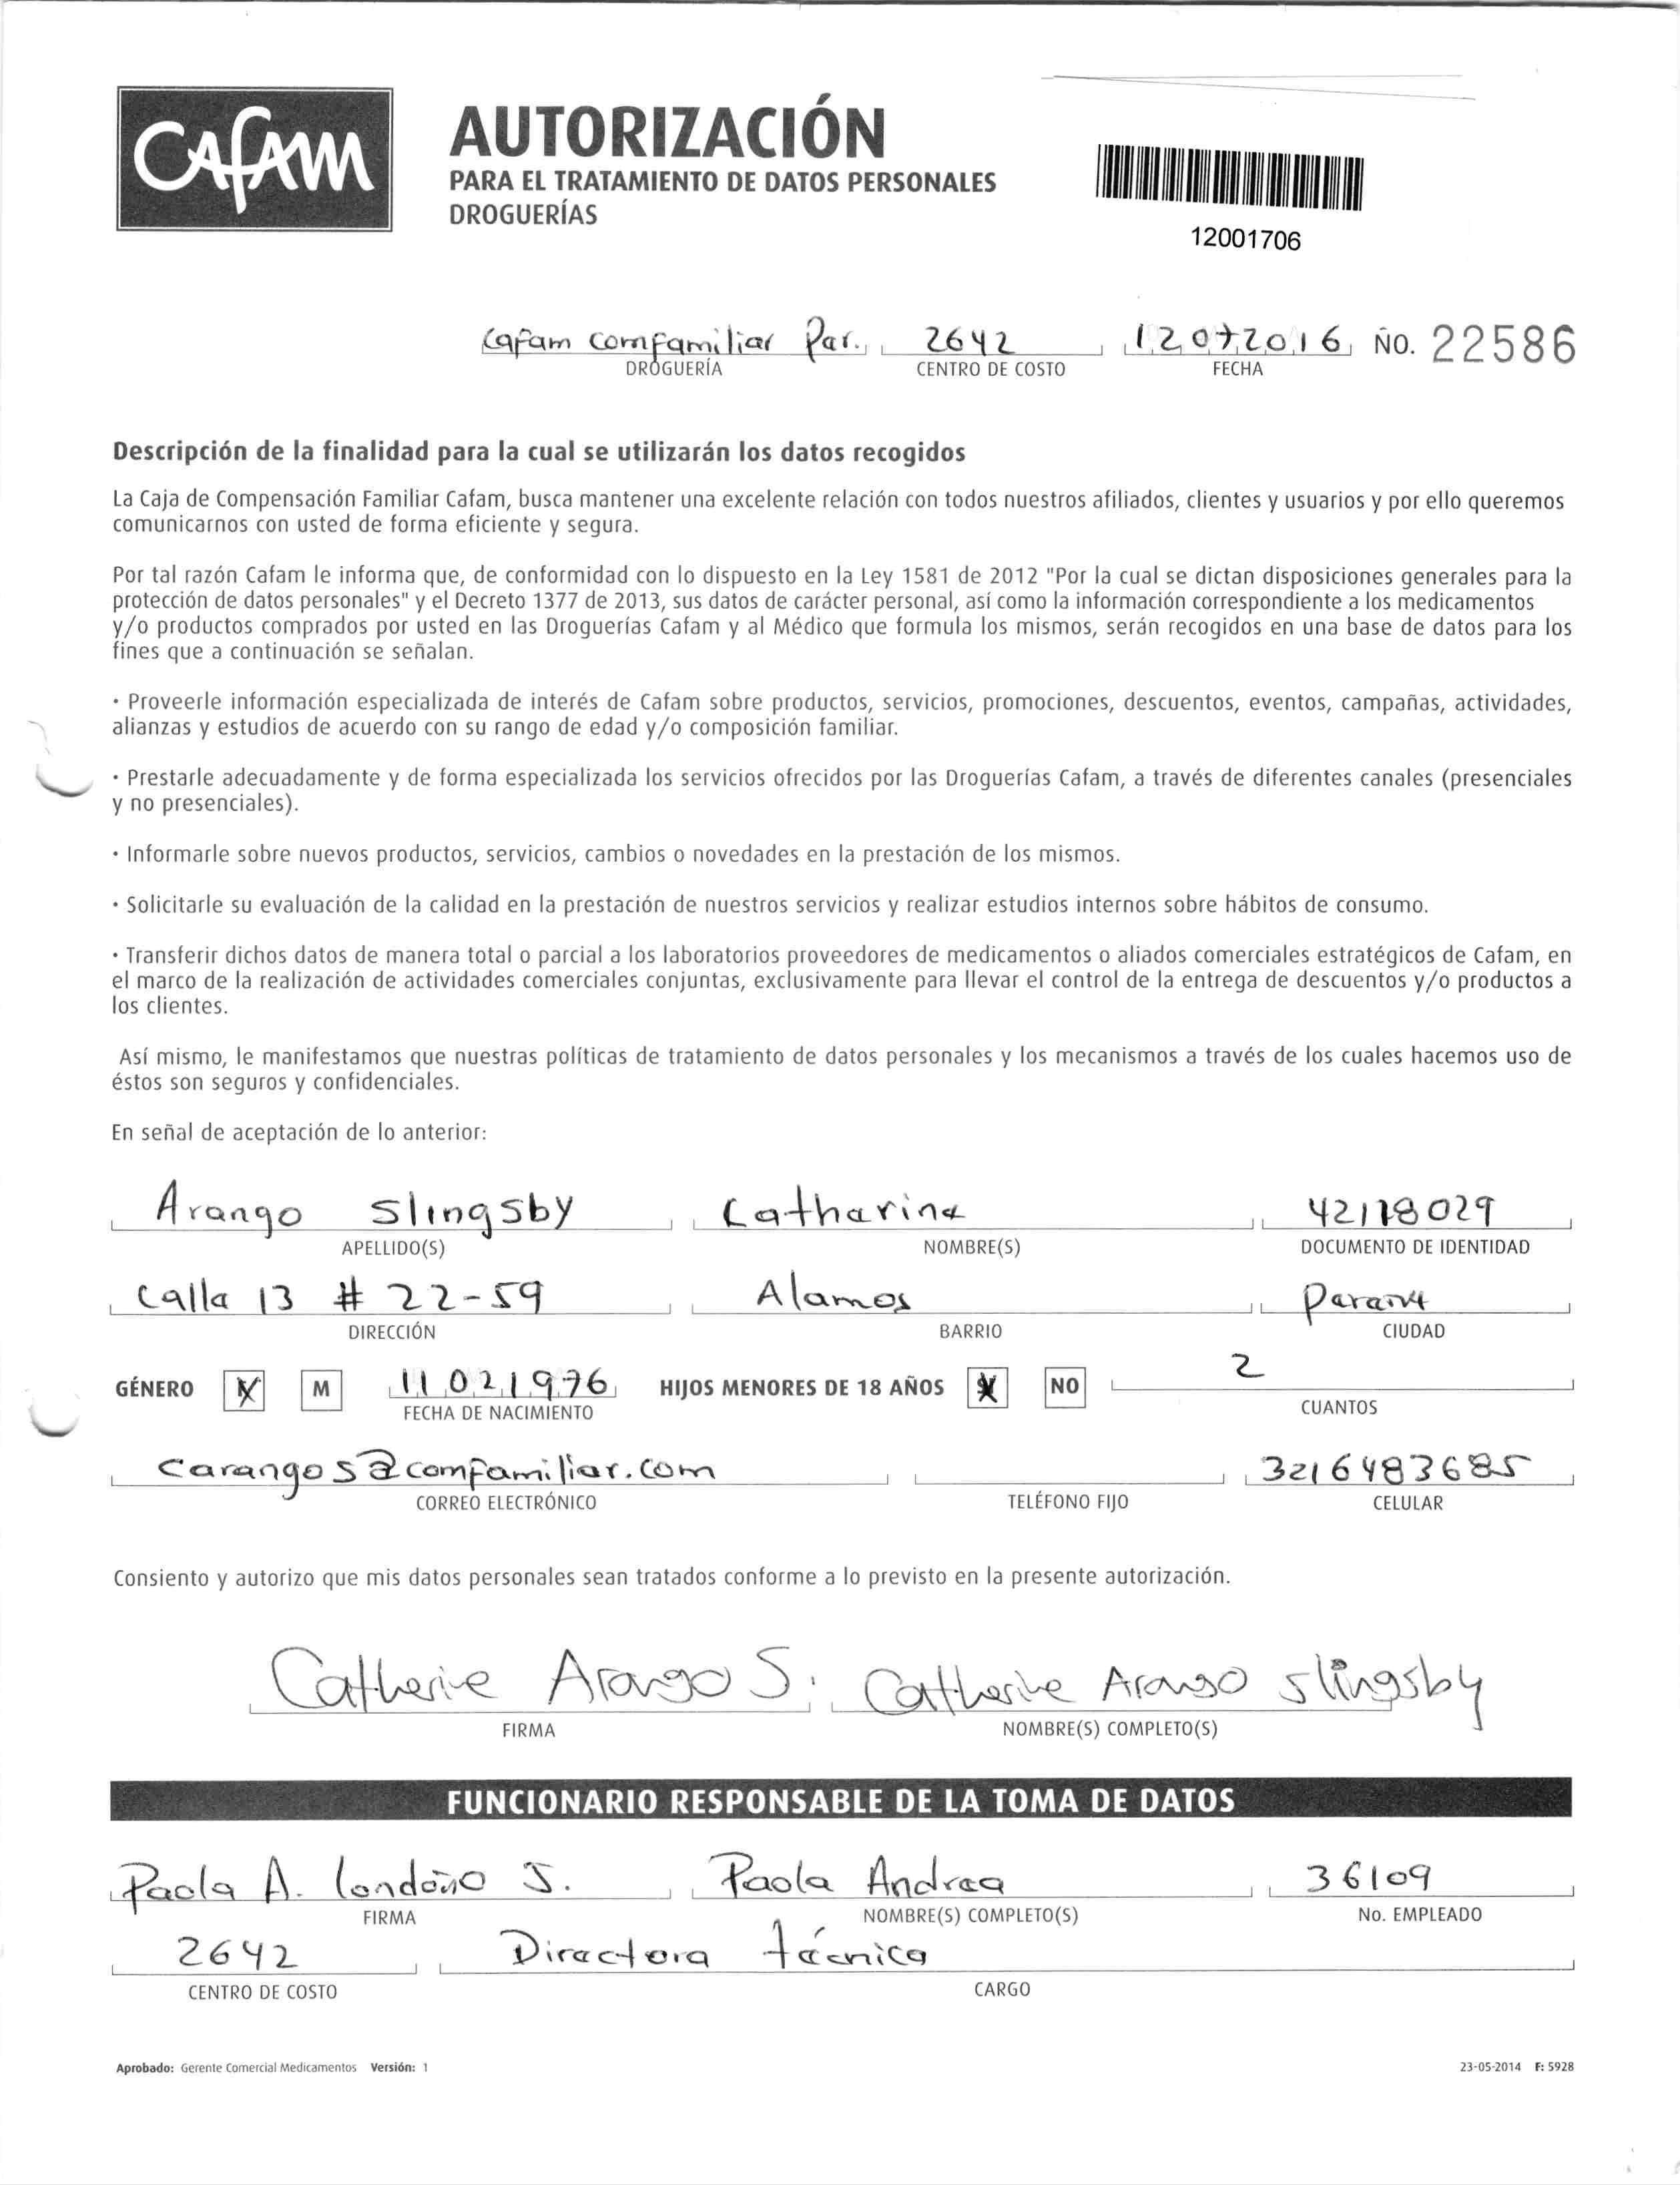 CAFAM
AUTORIZACIÓN
PARA EL TRATAMIENTO DE DATOS PERSONALES
DROGUERÍAS
12001706
Cafam comfamiliar Par. 2642 12072016 ÑO. 22586
DROGUERÍA CENTRO DE COSTO FECHA
Descripción de la finalidad para la cual se utilizarán los datos recogidos
La Caja de Compensación Familiar Cafam, busca mantener una excelente relación con todos nuestros afiliados, clientes y usuarios y por ello queremos
comunicarnos con usted de forma eficiente y segura.
Por tal razón Cafam le informa que, de conformidad con lo dispuesto en la Ley 1581 de 2012 "Por la cual se dictan disposiciones generales para la
protección de datos personales" y el Decreto 1377 de 2013, sus datos de carácter personal, así como la información correspondiente a los medicamentos
y/o productos comprados por usted en las Droguerías Cafam y al Médico que formula los mismos, serán recogidos en una base de datos para los
fines que a continuación se señalan.
· Proveerle información especializada de interés de Cafam sobre productos, servicios, promociones, descuentos, eventos, campañas, actividades,
alianzas y estudios de acuerdo con su rango de edad y/o composición familiar.
· Prestarle adecuadamente y de forma especializada los servicios ofrecidos por las Droguerías Cafam, a través de diferentes canales (presenciales
y no presenciales).
· Informarle sobre nuevos productos, servicios, cambios o novedades en la prestación de los mismos.
· Solicitarle su evaluación de la calidad en la prestación de nuestros servicios y realizar estudios internos sobre hábitos de consumo.
· Transferir dichos datos de manera total o parcial a los laboratorios proveedores de medicamentos o aliados comerciales estratégicos de Cafam, en
el marco de la realización de actividades comerciales conjuntas, exclusivamente para llevar el control de la entrega de descuentos y/o productos a
los clientes.
Así mismo, le manifestamos que nuestras políticas de tratamiento de datos personales y los mecanismos a través de los cuales hacemos uso de
éstos son seguros y confidenciales.
En señal de aceptación de lo anterior:
Arango Slingsby Catharine 42118029
APELLIDO(S) NOMBRE(S) DOCUMENTO DE IDENTIDAD
Calle 13 # 22-59 Alamos
DIRECCIÓN BARRIO CIUDAD
GÉNERO X M 11021976 HIJOS MENORES DE 18 AÑOS X NO 2
FECHA DE NACIMIENTO CUANTOS
carangos@comfamiliar.com 3216483685
CORREO ELECTRÓNICO TELÉFONO FIJO CELULAR
Consiento y autorizo que mis datos personales sean tratados conforme a lo previsto en la presente autorización.
Catherine Arango S. Catherine Arango Slingsby
FIRMA NOMBRE(S) COMPLETO(S)
FUNCIONARIO RESPONSABLE DE LA TOMA DE DATOS
Paola A. Londoño J. Paola Andrea 36109
FIRMA NOMBRE(S) COMPLETO(S) No. EMPLEADO
2642 Directora técnica
CENTRO DE COSTO CARGO
Aprobado: Gerente Comercial Medicamentos Versión: 1 23-05-2014 F: 5928